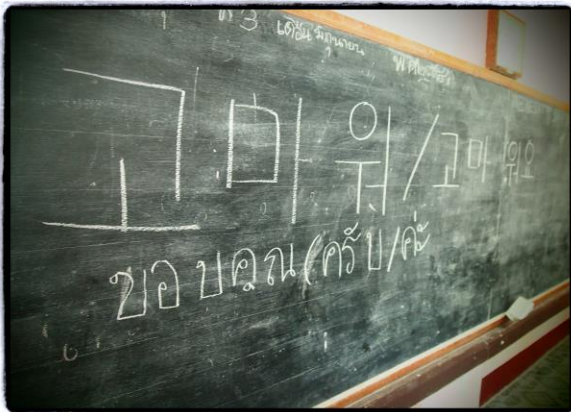 3 เดือน มิถุนายน
고마워/고마워요
ขอบคุณ(ครับ/ค่ะ